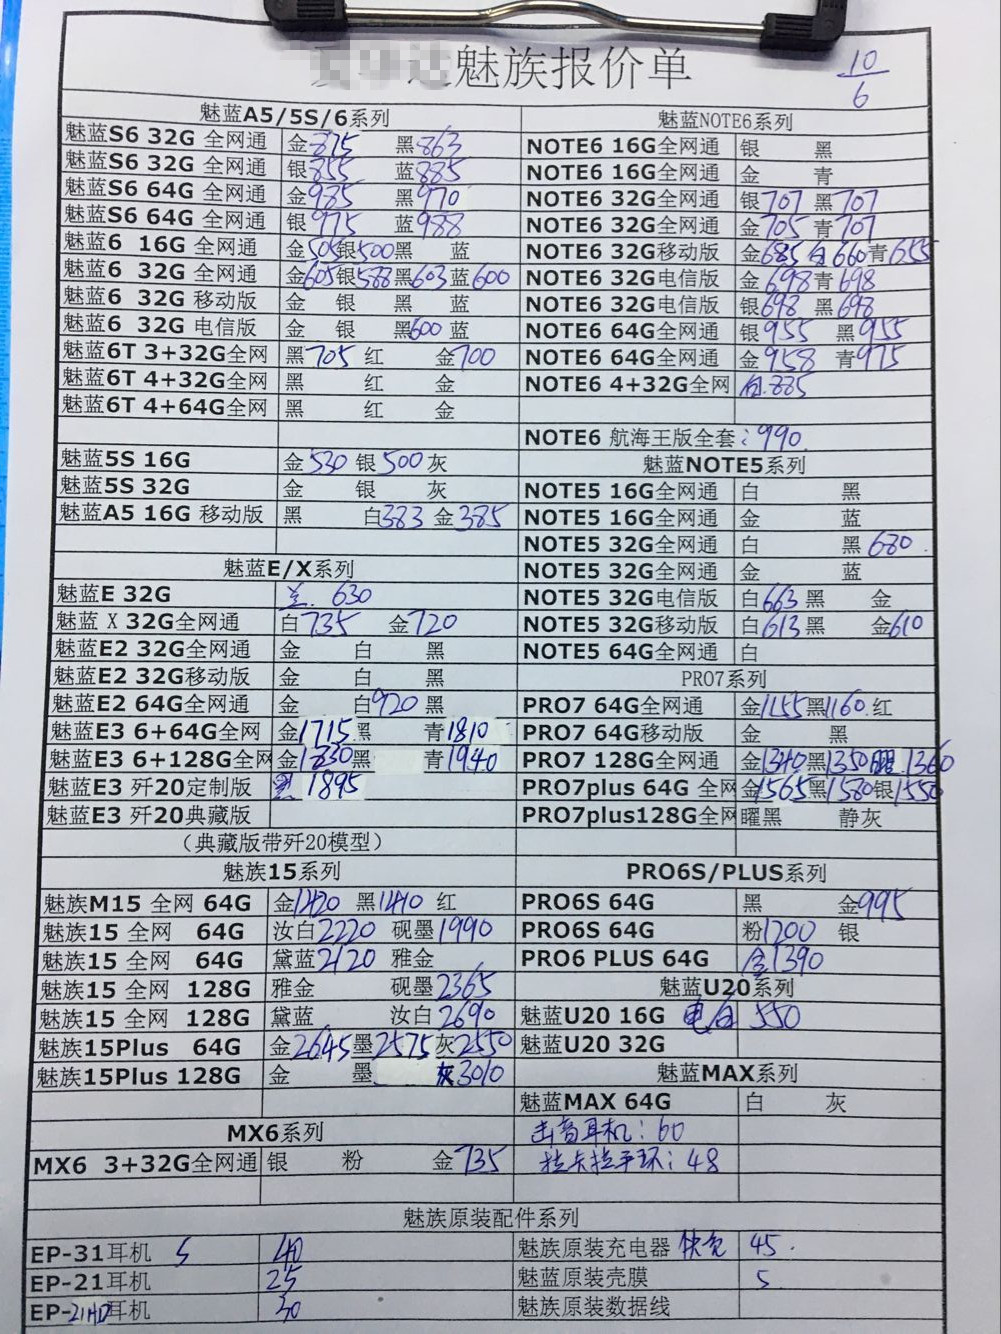 魅族报价单
10/6
魅蓝A5/5S/6系列
魅蓝S6 32G 全网通 金875 黑863
魅蓝S6 32G 全网通 银855 蓝885
魅蓝S6 64G 全网通 金985 黑970
魅蓝S6 64G 全网通 银975 蓝988
魅蓝6 16G 全网通 金505银500黑 蓝
魅蓝6 32G 全网通 金605银588黑603蓝600
魅蓝6 32G 移动版 金 银 黑 蓝
魅蓝6 32G 电信版 金 银 黑600 蓝
魅蓝6T 3+32G全网 黑705 红 金700
魅蓝6T 4+32G全网 黑 红 金
魅蓝6T 4+64G全网 黑 红 金
魅蓝5S 16G 金530 银500灰
魅蓝5S 32G 金 银 灰
魅蓝A5 16G 移动版 黑 白383 金385
魅蓝E/X系列
魅蓝E 32G 630
魅蓝X 32G全网通 白735 金720
魅蓝E2 32G全网通 金 白 黑
魅蓝E2 32G移动版 金 白 黑
魅蓝E2 64G全网通 金 白920 黑
魅蓝E3 6+64G全网 金1715黑 青1810
魅蓝E3 6+128G全网 金1830黑 青1940
魅蓝E3 歼20定制版 黑 1895
魅蓝E3 歼20典藏版
（典藏版带歼20模型）
魅族15系列
魅族M15 全网 64G 金1420 黑1410 红
魅族15 全网 64G 汝白2220 砚墨1990
魅族15 全网 64G 黛蓝2120 雅金
魅族15 全网 128G 雅金 砚墨2365
魅族15 全网 128G 黛蓝 汝白2690
魅族15Plus 64G 金2645墨2575灰2550
魅族15Plus 128G 金 墨 灰3010
MX6系列
MX6 3+32G全网通 银 粉 金735
魅蓝NOTE6系列
NOTE6 16G全网通 银 黑
NOTE6 16G全网通 金 青
NOTE6 32G全网通 银707 黑707
NOTE6 32G全网通 金705 青707
NOTE6 32G移动版 金685 白660青655
NOTE6 32G电信版 金698青698
NOTE6 32G电信版 银698 黑698
NOTE6 64G全网通 银955 黑955
NOTE6 64G全网通 金958 青975
NOTE6 4+32G全网 白.885
NOTE6 航海王版全套：990
魅蓝NOTE5系列
NOTE5 16G全网通 白 黑
NOTE5 16G全网通 金 蓝
NOTE5 32G全网通 白 黑680.
NOTE5 32G全网通 金 蓝
NOTE5 32G电信版 白663 黑 金
NOTE5 32G移动版 白613 黑 金610
NOTE5 64G全网通 白
PRO7系列
PRO7 64G全网通 金1155黑1160 红
PRO7 64G移动版 金 黑
PRO7 128G全网通 金1340黑1350 1360
PRO7plus 64G 全网 金1565黑1580银1550
PRO7plus128G全网 曜黑 静灰
PRO6S/PLUS系列
PRO6S 64G 黑 金995
PRO6S 64G 粉1200 银
PRO6 PLUS 64G 金1390
魅蓝U20系列
魅蓝U20 16G 电白 550
魅蓝U20 32G
魅蓝MAX系列
魅蓝MAX 64G 白 灰
击音耳机：60
拉卡拉手环：48
魅族原装配件系列
EP-31耳机 40
EP-21耳机 25
EP-21HD耳机 30
魅族原装充电器 快充 45.
魅蓝原装壳膜 5
魅族原装数据线